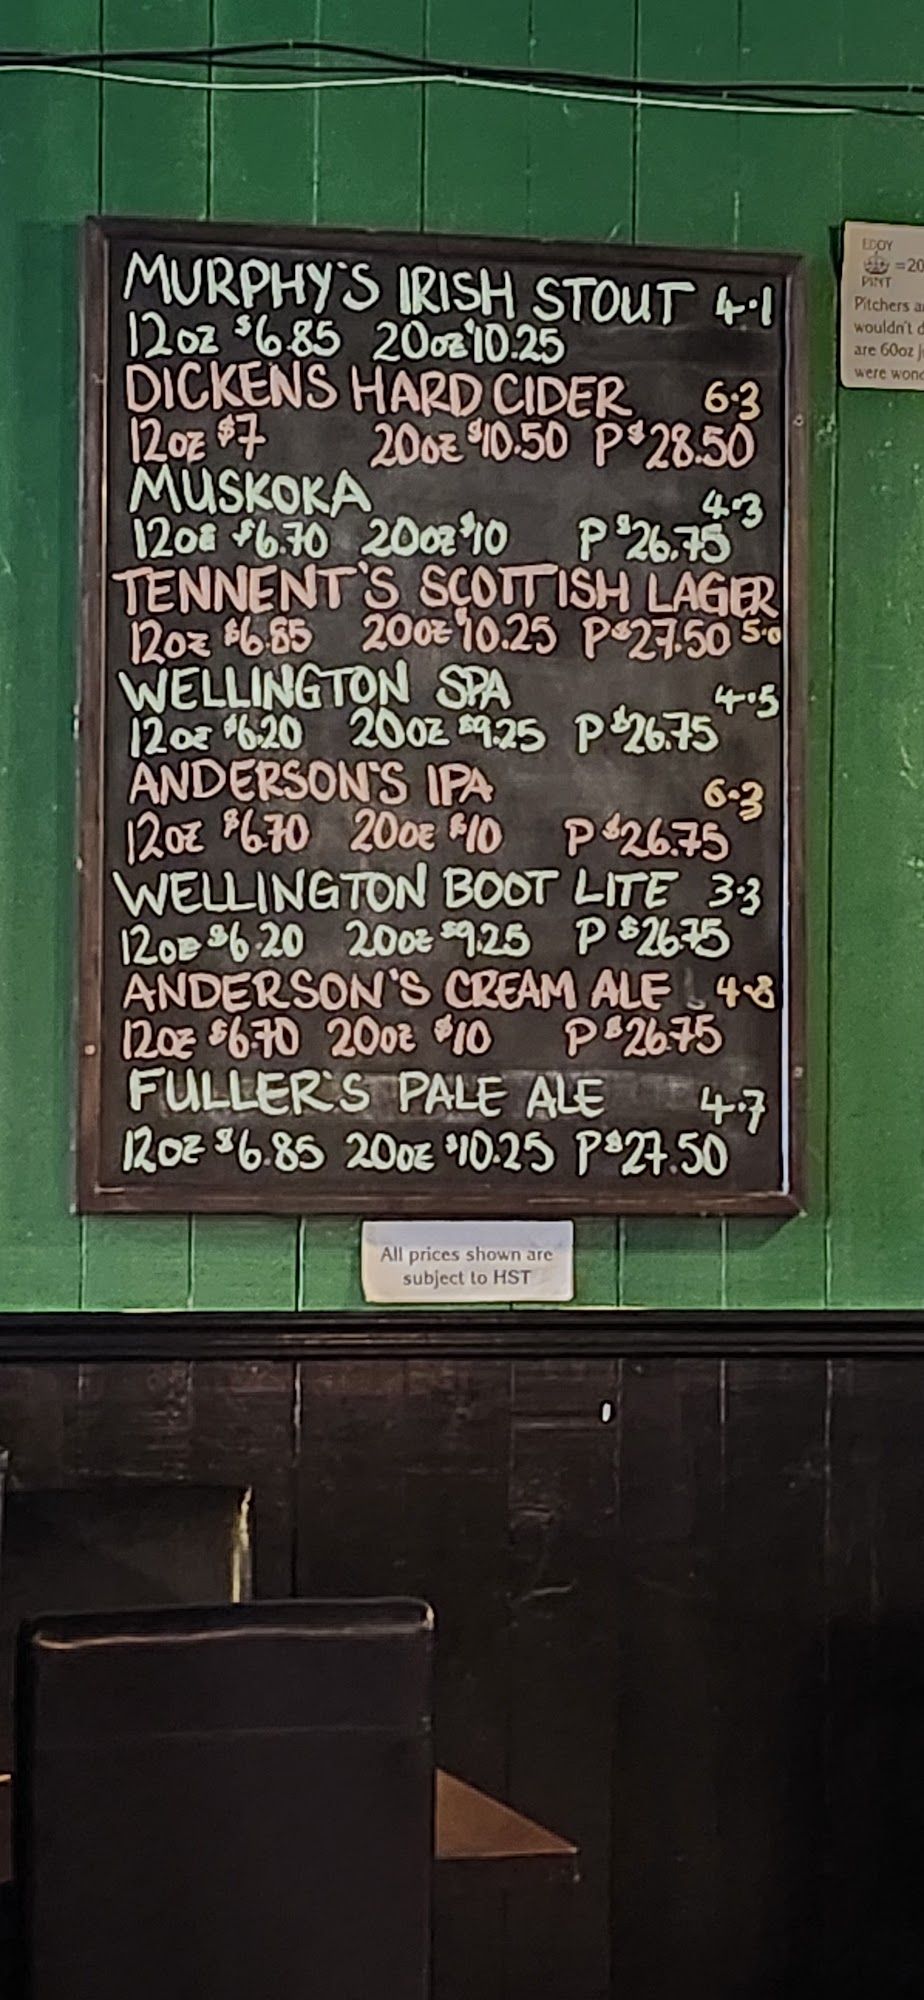 MURPHY'S IRISH STOUT 4.1
12oz $6.85 20oz $10.25
DICKENS HARD CIDER 6.3
12oz $7 20oz $10.50 P $28.50
MUSKOKA 4.3
12oz $6.70 20oz $10 P $26.75
TENNENT'S SCOTTISH LAGER
12oz $6.85 20oz $10.25 P $27.50 5.0
WELLINGTON SPA 4.5
12oz $6.20 20oz $9.25 P $26.75
ANDERSON'S IPA 6.3
12oz $6.70 20oz $10 P $26.75
WELLINGTON BOOT LITE 3.3
12oz $6.20 20oz $9.25 P $26.75
ANDERSON'S CREAM ALE 4.8
12oz $6.70 20oz $10 P $26.75
FULLER'S PALE ALE 4.7
12oz $6.85 20oz $10.25 P $27.50
All prices shown are
subject to HST
=20
PINT
Pitchers
wouldn't
are 60oz
were